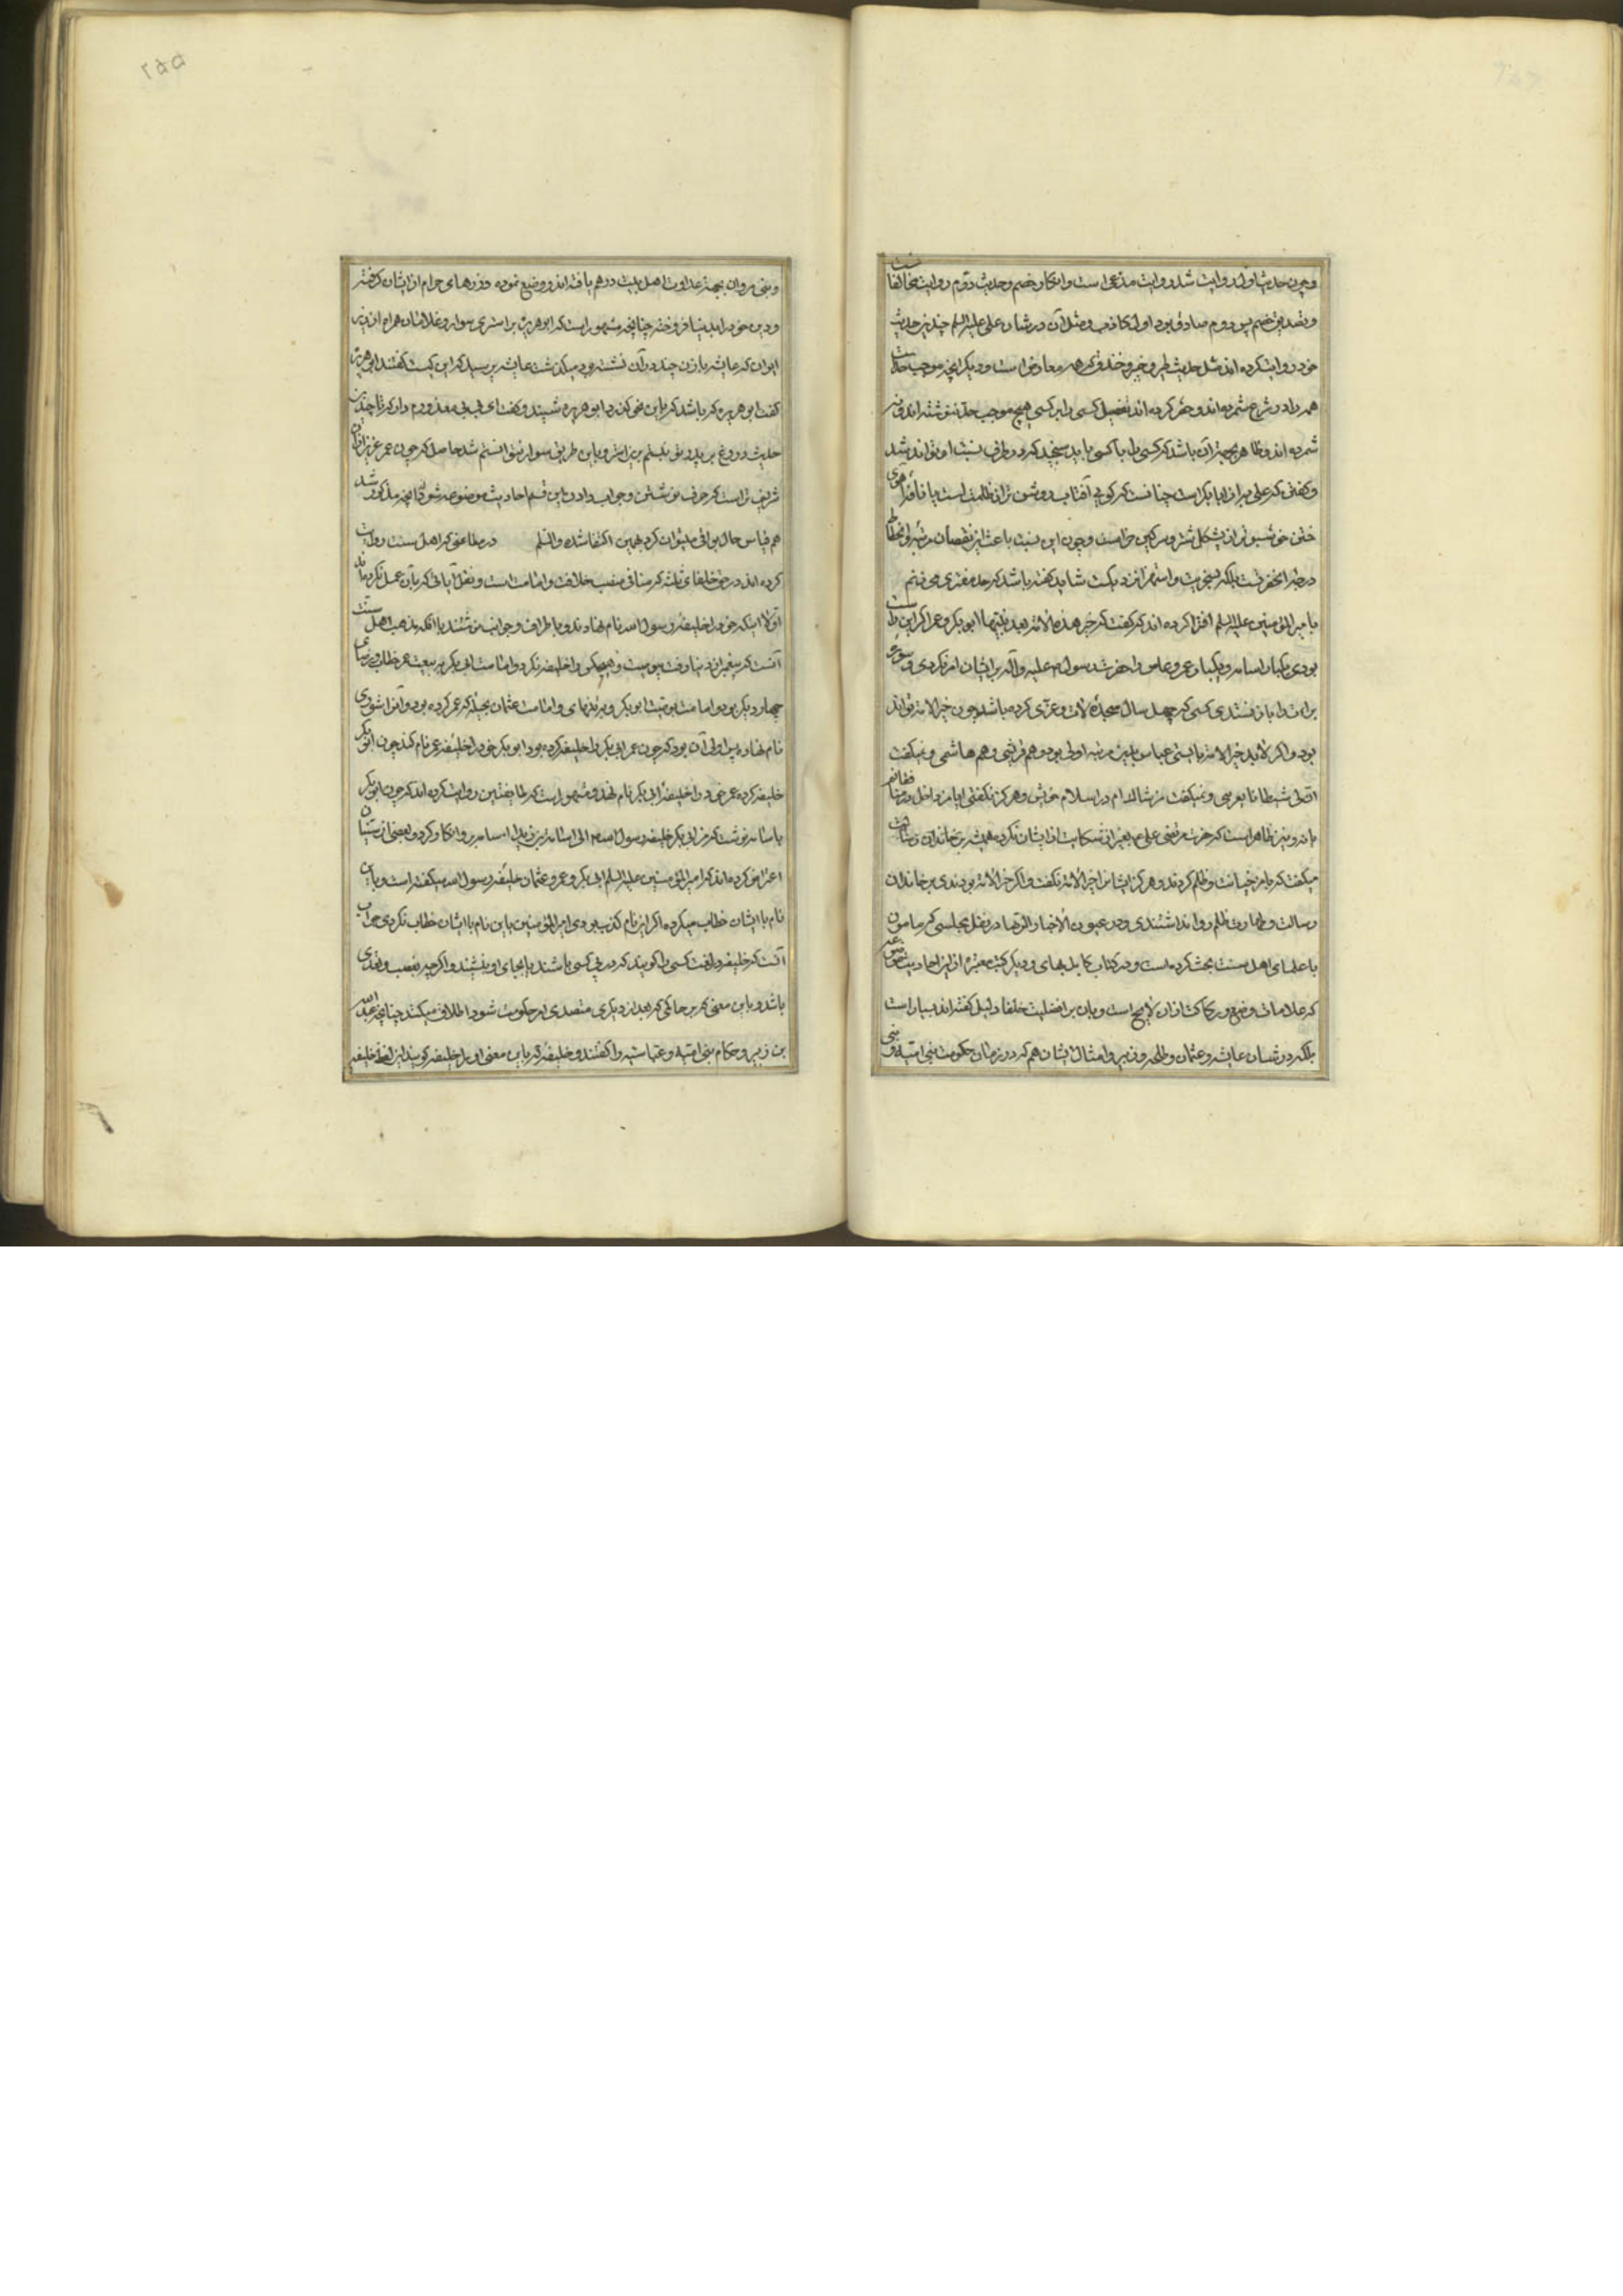 وچون حدیث اول روایت شد و روایت مدعی است و انکار خصم و حدیث دوم روایت مخالفانست
و تصدیق خصم پس دوم صادق بود و اول کاذب و مثل آن در شان علی علیه السلم چندین حدیث
خود روایت کرده اند مثل حدیث طیر و خیبر و خندق که همه معارض است و دیگر آنچه موجب حد است
همه را در شرع شمرده اند و حصر کرده اند تفضیل کسی را بر کسی هیچ موجب حد ننوشته اند و نه
شمرده اند و ظاهر بجهت آن باشد که کسی را با کسی باید سنجید که در طرف نسبت او تواند شد
و گفتن که علی به از ابا بکر است چنانست که کوئی آفتاب روشن تر از ظلمت است یا نافه آهوی
ختن خوشبوتر از پشکل شتر و سرکین خر است و چون این نسبت باعث این نقصان مرتبه و انحطاط
درجه آنحضرتست بلکه سخریت و استهزا نزدیکست شاید گفته باشد که حد مفتری می زنم
با میر المؤمنین علیه السلم افترا کرده اند که گفت که خیر هذه الامة بعد نبیها ابو بکر و عمر اگر این راست
بودی یکبار اسامه و یکبار عمرو عاص را حضرت رسول علیه وآله بر ایشان امر نکردی و سوره
برات را باز نستدی کسی که چهل سال سجده لات و عزی کرده باشد چون خیر الامة تواند
بود و اگر لابد خیر الامة بایستی عباس باین مرتبه اولی بود و هم قرشی و هم هاشمی و نمیگفت
ان لی شیطانا یعرینی و نمیگفت من شاک ام در اسلام خویش و هرگز نگفتی ایا من داخل در منافقانم
یا نه و نیز ظاهر است که حضرت مرتضی علی عم بغیر از شکایت از ایشان نکرده همیشه بر خاندان رسالت
میگفت که با من خیانت و ظلم کردند و هرگز ایشانرا خیر الامة نگفت و اگر خیر الامة بودندی بر خاندان
رسالت و طهارت ظلم روا نداشتندی و در عیون الاخبار الرضا در نقل مجلسی که مامون
با علمای اهل سنت بحث کرده است و در کتاب کامل بهای و دیگر کتب معتبره از این احادیث موضوعه
که علامات وضع و رکاکت از آن لایح است و بان بر افضلیت خلفا دلیل گفته اند بسیار است
بلکه در شان عایشه و عثمان و طلحه و زبیر و امثال ایشان هم که در زمان حکومت بنی امیه و بنی
و بنی مروان بجهت عداوت اهل بیت درهم بافته اند و وضع نموده و زرهای حرام از ایشان گرفته
و دین خود را بدنیا فروخته چنانچه مشهور است که ابو هریره بر استری سوار و غلامان همراه از زیر
ایوان که عایشه با زن چند در آن نشسته بود میگذشت عایشه پرسید که این کیست گفتند ابو هریره
گفت ابو هریره که باشد که باین می کند ابو هریره شنید و گفت ای بی بی معذورم دار که تا چندین
حدیث دروغ بر پدر تو نبستم بر این استر و باین طریق سوار نتوانستم شد حاصل که چون عمر عزیز از آن
شریف تر است که صرف نوشتن و جواب دادن این قسم احادیث موضوعه شود بآنچه مذکور شد
هم قیاس حال بواقی میتوان کرد بهمین اکتفا شده والسلم در مطاعنی که اهل سنت روایت
کرده اند در حق خلفای ثلثه که منافی منصب خلافت و امامت است و نقل آیاتی که بآن عمل نکرده اند
اولا اینکه خود را خلیفه رسول الله نام نهادند و باطراف و جوانب نوشتند با آنکه مذهب اهل سنت
آنست که پیغمبر از دنیا رفت و هیچکس را خلیفه نکرد و امامت ابی بکر به بیعت عمر خطاب و رضای
چهار دیگر بود و امامت عمر بنص ابو بکر و به رضای و امامت عثمان بحیله که عمر کرده بود و آنرا شوری
نام نهاده پس اولی آن بود که چون عمر ابی بکر را خلیفه کرده بود ابو بکر خود را خلیفه عمر نام کند چون ابو بکر
خلیفه کرده عمر خود را خلیفه ابی بکر نام نهد و مشهور است که طایفتین روایت کرده اند که چون ابو بکر
باسامه نوشت که من ابی بکر خلیفه رسول الله الی اسامه بن زید اسامه بر او انکار کرد و بعضی از سنیان
اعتراض کرده اند که امیر المؤمنین علیه السلم ابی بکر و عمر و عثمان را خلیفه رسول الله میگفته است و باین
نام با ایشان خطاب میکرده اگر این نام کذب بودی امیر المؤمنین باین نام با ایشان خطاب نکردی جواب
آنست که خلیفه در لغت کسی را گویند که در پی کسی باشند یا بجای او بنشیند و اگر چه بغصب و تعدی
باشد و باین معنی که هر حاکمی که بعد از دیگری متصدی امر حکومت شود اطلاق میکنند چنانچه عبد الله
بن زبیر و حکام بنی امیه و عباسیه را گفتند و خلیفه که باین معنی او را خلیفه گویند از لفظ خلیفه